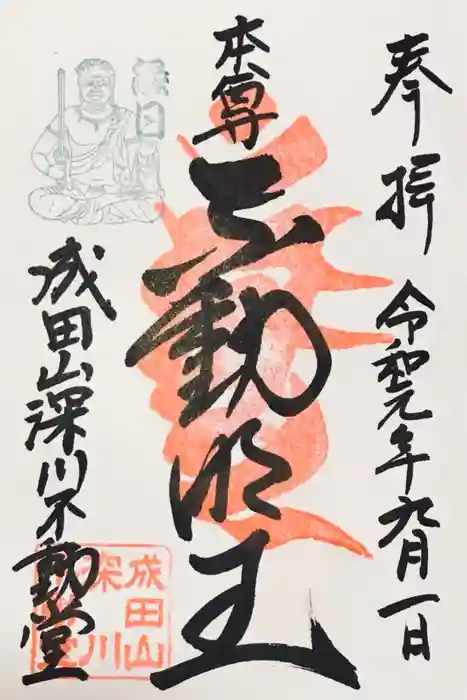 奉拝
令和元年九月一日
本尊
不動明王
成田山深川不動堂
成田山
深川